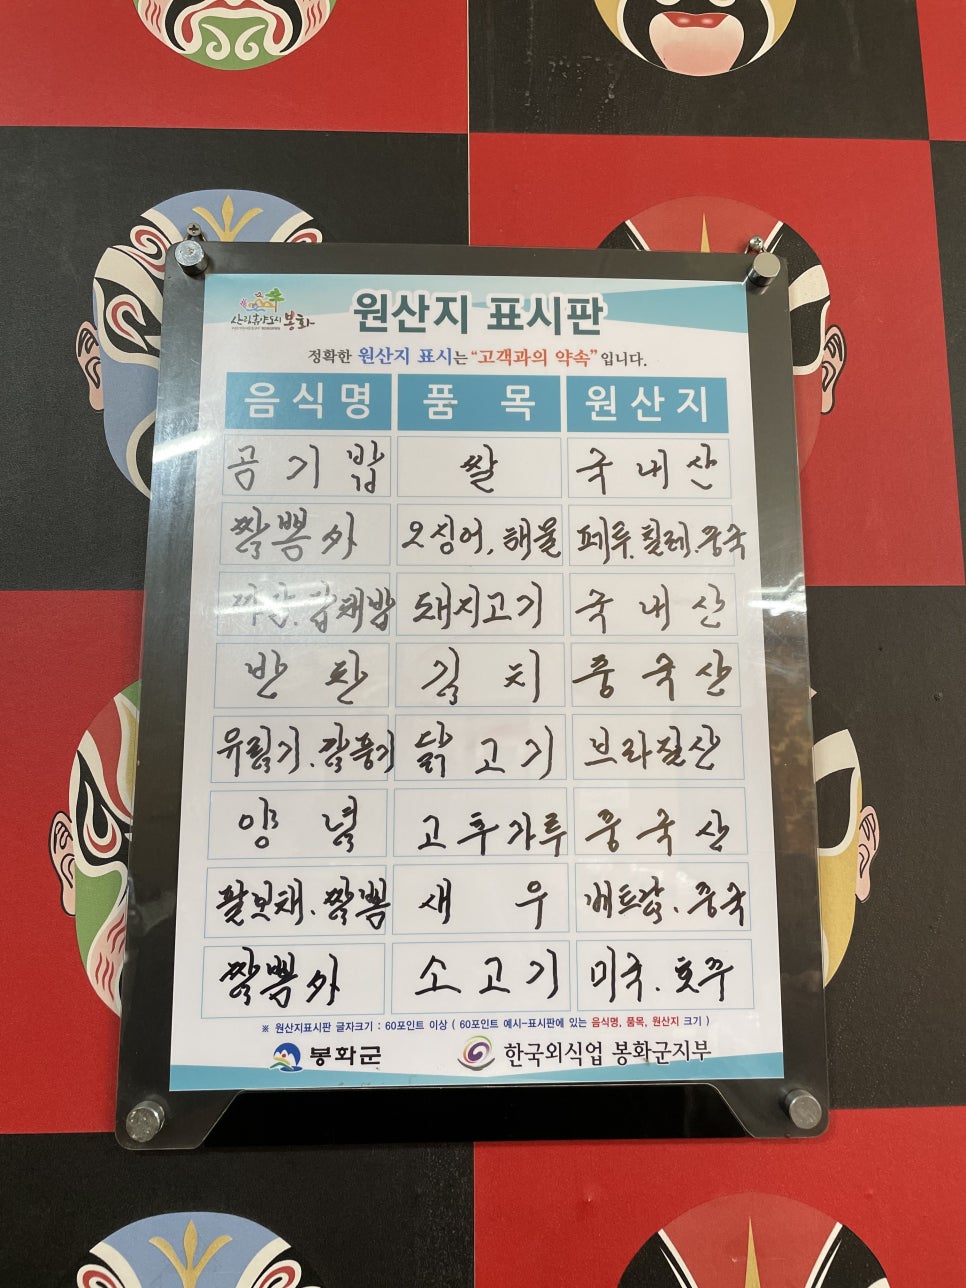 산림휴양도시 봉화
원산지 표시판
정확한 원산지 표시는 “고객과의 약속” 입니다.
음식명 품목 원산지
공기밥 쌀 국내산
짬뽕外 오징어, 해물 페루. 칠레. 중국
짜장. 잡채밥 돼지고기 국내산
반찬 김치 중국산
유림기. 깐풍기 닭고기 브라질산
양념 고추가루 중국산
팔보채. 짬뽕 새우 베트남. 중국
짬뽕外 소고기 미국. 호주
※ 원산지표시판 글자크기 : 60포인트 이상 ( 60포인트 예시-표시판에 있는 음식명, 품목, 원산지 크기 )
봉화군 한국외식업 봉화군지부